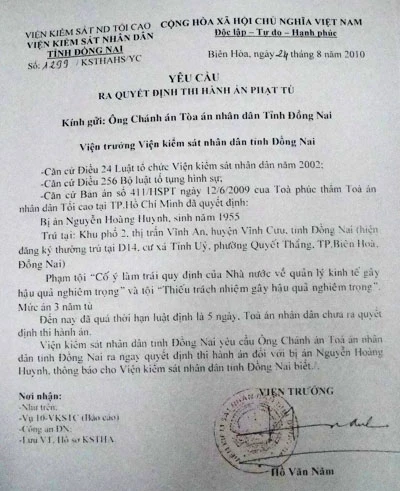 VIỆN KIỂM SÁT ND TỐI CAO
VIỆN KIỂM SÁT NHÂN DÂN
TỈNH ĐỒNG NAI
Số: 1299 / KSTHAHS/YC
CỘNG HÒA XÃ HỘI CHỦ NGHĨA VIỆT NAM
Độc lập – Tự do – Hạnh phúc
Biên Hòa, ngày 24 tháng 8 năm 2010
YÊU CẦU
RA QUYẾT ĐỊNH THI HÀNH ÁN PHẠT TÙ
Kính gửi: Ông Chánh án Tòa án nhân dân Tỉnh Đồng Nai
Viện trưởng Viện kiểm sát nhân dân tỉnh Đồng Nai
-Căn cứ Điều 24 Luật tổ chức Viện kiểm sát nhân dân năm 2002;
-Căn cứ Điều 256 Bộ luật tố tụng hình sự;
-Căn cứ Bản án số 411/HSPT ngày 12/6/2009 của Toà phúc thẩm Toà án
nhân dân Tối cao tại TP.Hồ Chí Minh đã quyết định:
Bị án Nguyễn Hoàng Huynh, sinh năm 1955
Trú tại: Khu phố 2, thị trấn Vĩnh An, huyện Vĩnh Cửu, tỉnh Đồng Nai (hiện
đăng ký thường trú tại D14, cư xá Tỉnh Uỷ, phường Quyết Thắng, TP.Biên Hoà,
Đồng Nai)
Phạm tội “Cố ý làm trái quy định của Nhà nước về quản lý kinh tế gây
hậu quả nghiêm trọng” và tội “Thiếu trách nhiệm gây hậu quả nghiêm trọng”.
Mức án 3 năm tù
Đến nay đã quá thời hạn luật định là 5 ngày, Toà án nhân dân chưa ra quyết
định thi hành án.
Viện kiểm sát nhân dân tỉnh Đồng Nai yêu cầu Ông Chánh án Toà án nhân
dân tỉnh Đồng Nai ra ngay quyết định thi hành án đối với bị án Nguyễn Hoàng
Huynh, thông báo cho Viện kiểm sát nhân dân tỉnh Đồng Nai biết./.
Nơi nhận:
-Như trên;
-Vụ 10-VKSTC (Báo cáo)
-Công an ĐN;
-Lưu VT, Hồ sơ KSTHA.
VIỆN TRƯỞNG
Hồ Văn Năm